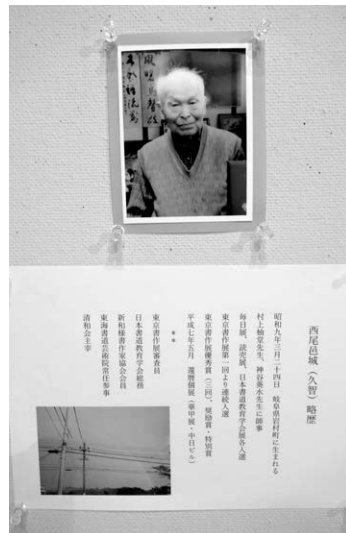 西尾邑城（久智）略歴
昭和九年三月二十四日　岐阜県岩村町に生まれる
村上楠堂先生、神谷葵水先生に師事
毎日展、読売展、日本書道教育学会展各入選
東京書作展第一回より連続入選
東京書作展優秀賞（三回）、奨励賞・特別賞
平成七年五月　還暦個展（華甲展・中日ビル）
＊＊
東京書作展審査員
日本書道教育学会総務
新和様書作家協会会員
東海書道芸術院常任参事
清和会主宰